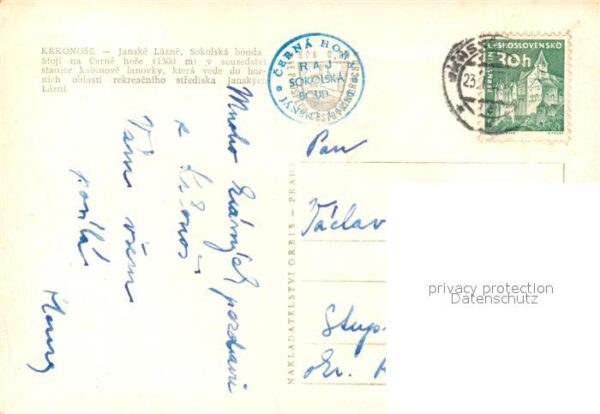 KRKONOŠE — Janské Lázně, Sokolská bouda
Stojí na Černé hoře (1300 m) v sousedství
stanice kabinové lanovky, která vede do hor-
ních oblastí rekreačního střediska Janských
Lázní.
ČERNÁ HORA
RAJ
SOKOLSKÁ
BOUDA
ČESKOSLOVENSKO
30h
23
Mnoho krásných pozdravů
z Krkonoš
Vám všem
posílá
NAKLADATELSTVÍ ORBIS — PRAHA
Pan
Václav
Stup
Okr.
privacy protection
Datenschutz